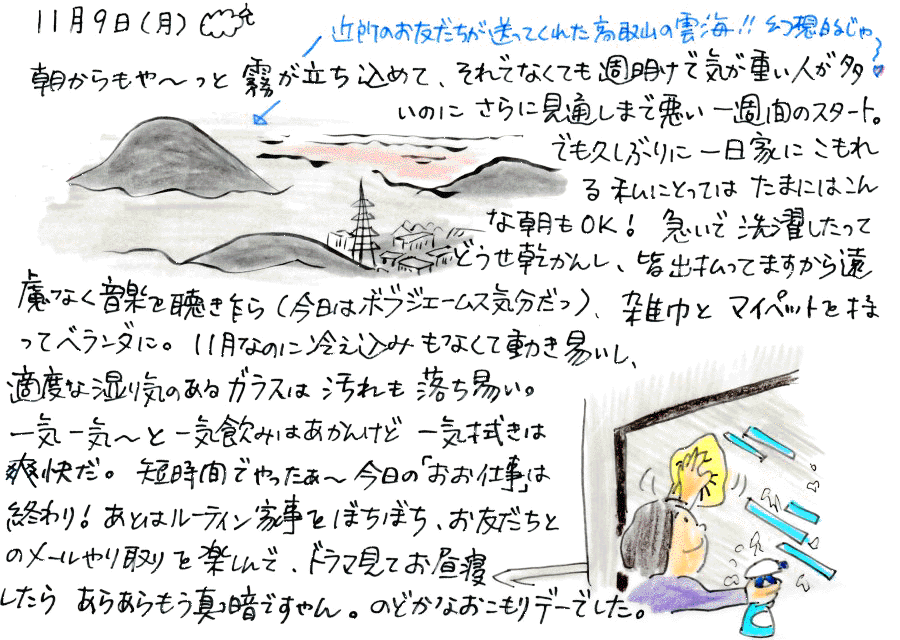 11月9日(月)
近所のお友だちが送ってくれた高取山の雲海!! 幻想的じゃ
朝からもや〜っと 霧が立ち込めて、それでなくても週明けで気が重い人が多
いのに さらに見通しまで悪い一週間のスタート。
でも久しぶりに一日家にこもれ
る私にとっては たまにはこん
な朝もOK! 急いで洗濯したって
どうせ乾かんし、皆出払ってますから遠
慮なく音楽を聴き乍ら(今日はボブジェームス気分だっ)、雑巾とマイペットを持
ってベランダに。11月なのに冷え込みもなくて動き易いし、
適度な湿り気のあるガラスは汚れも落ち易い。
一気一気〜と一気飲みはあかんけど 一気拭きは
爽快だ。短時間でやったぁ〜今日の「お仕事」は
終わり! あとはルーティン家事をぼちぼち、お友だちと
のメールやり取りを楽しんで、ドラマ見てお昼寝
したら あらあらもう真っ暗ですやん。のどかなおこもりデーでした。